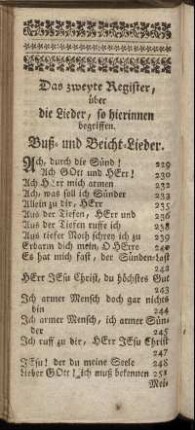 Das zweyte Register,
über
die Lieder, so hierinnen
begriffen.
Buß- und Beicht-Lieder.
Ach, durch die Sünd! 229
Ach GOtt und HErr! 230
Ach HErr mich armen 232
Ach, was soll ich Sünder 233
Allein zu dir, HErr 235
Aus der Tiefen, HErr und 236
Aus der Tiefen ruffe ich 238
Aus tiefer Noth schrey ich zu 239
Erbarm dich mein, O HErre 240
Es hat mich fast, der Sünden-Last
242
HErr JEsu Christ, du höchstes Gut
243
Ich armer Mensch doch gar nichts
bin 244
Ich armer Mensch, ich armer Sün-
der 245
Ich ruff zu dir, HErr JEsu Christ
247
JEsu! der du meine Seele 248
Lieber GOtt! ich muß bekennen 251
Mei-